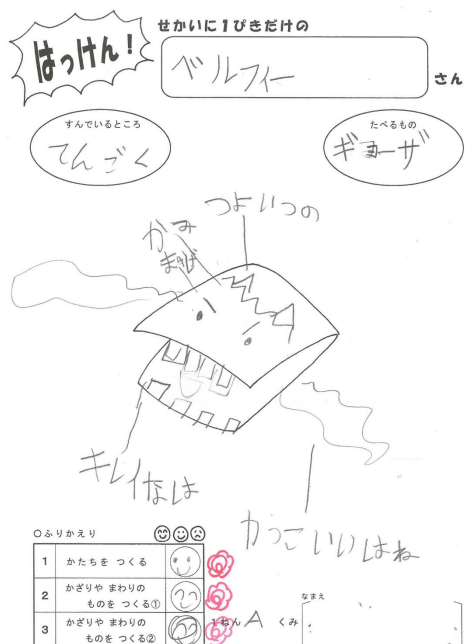 はっけん!
せかいに1ぴきだけの
ベルフィー
さん
すんでいるところ
てんごく
たべるもの
ギョーザ
つよいつの
かみ
まゆげ
キレイなは
かっこいいはね
○ふりかえり
1 かたちを つくる
2 かざりや まわりの
ものを つくる①
3 かざりや まわりの
ものを つくる②
1ねん A くみ
なまえ